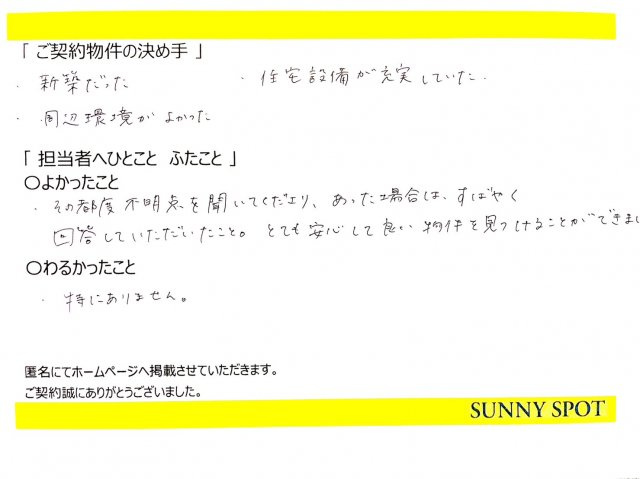 「 ご契約物件の決め手 」
・ 新築だった ・ 住宅設備が充実していた.
・ 周辺環境がよかった
「 担当者へひとこと ふたこと 」
〇よかったこと
・ その都度 不明点を聞いてくださり、あった場合は、すばやく
回答していただいたこと。とても安心して良い物件を見つけることができまし
〇わるかったこと
・ 特にありません。
匿名にてホームページへ掲載させていただきます。
ご契約誠にありがとうございました。
SUNNY SPOT